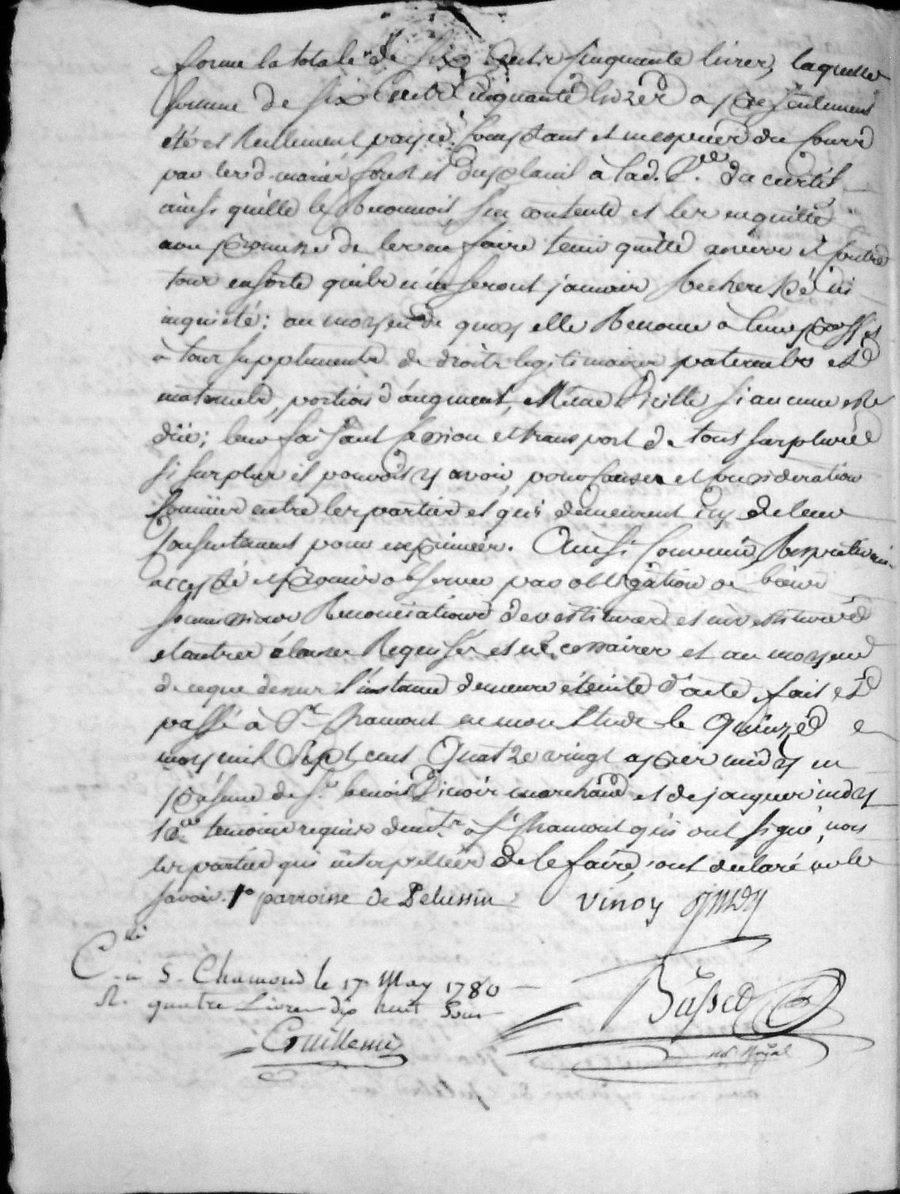 forme la totale de six Cents Cinquante livres, laquelle
somme de six Cents Cinquante livres a presentement
été et Réellement payée Comptant et en especes du Cours
par lesd. mariés forest et duplanil à lad. du curtil
ainsi qu'elle le Reconnoit, s'en contente et les en quitte
avec promesse de les en faire tenir quitte envers et contre
tous ensorte qu'ils n'en seront jamais Recherchés ni
inquiété; au moyen de quoy elle Renonce à leur proffit
à tous supplements de droits legitimaires paternels et
maternels, portion d'augment, Même d'icelle si aucune est
düe; leur faisant cession et transport de tous surplus
si surplus il pouvoit y avoir, pour Causes et consideration
Connües entre les parties et qui demeurent icy de leur
Consentement pour exprimées. Ainsi Convenu, Respectivem.
accepté et promis observer par obligation de biens
soumissions Renonciations devestitures et investitures
et autres clauses Requises et necessaires et au moyen
de ce que dessus l'instance demeure éteinte d'acte. fait et
passé à St. Chamont en mon Etude le quinze
may mil sept cent Quatre vingt apres midy en
presence de Sr. benoit vinoir marchand et de jacques indy
temoins requis demts. à St. Chamont qui ont signé, non
les parties qui interpellées de le faire, ont declaré ne le
savoir. 1° parroisse de Pelussin
vinoy
C. à S. Chamond le 17 May 1780
R. quatre Livres dix huit Sous
Guillemin
not. Royal